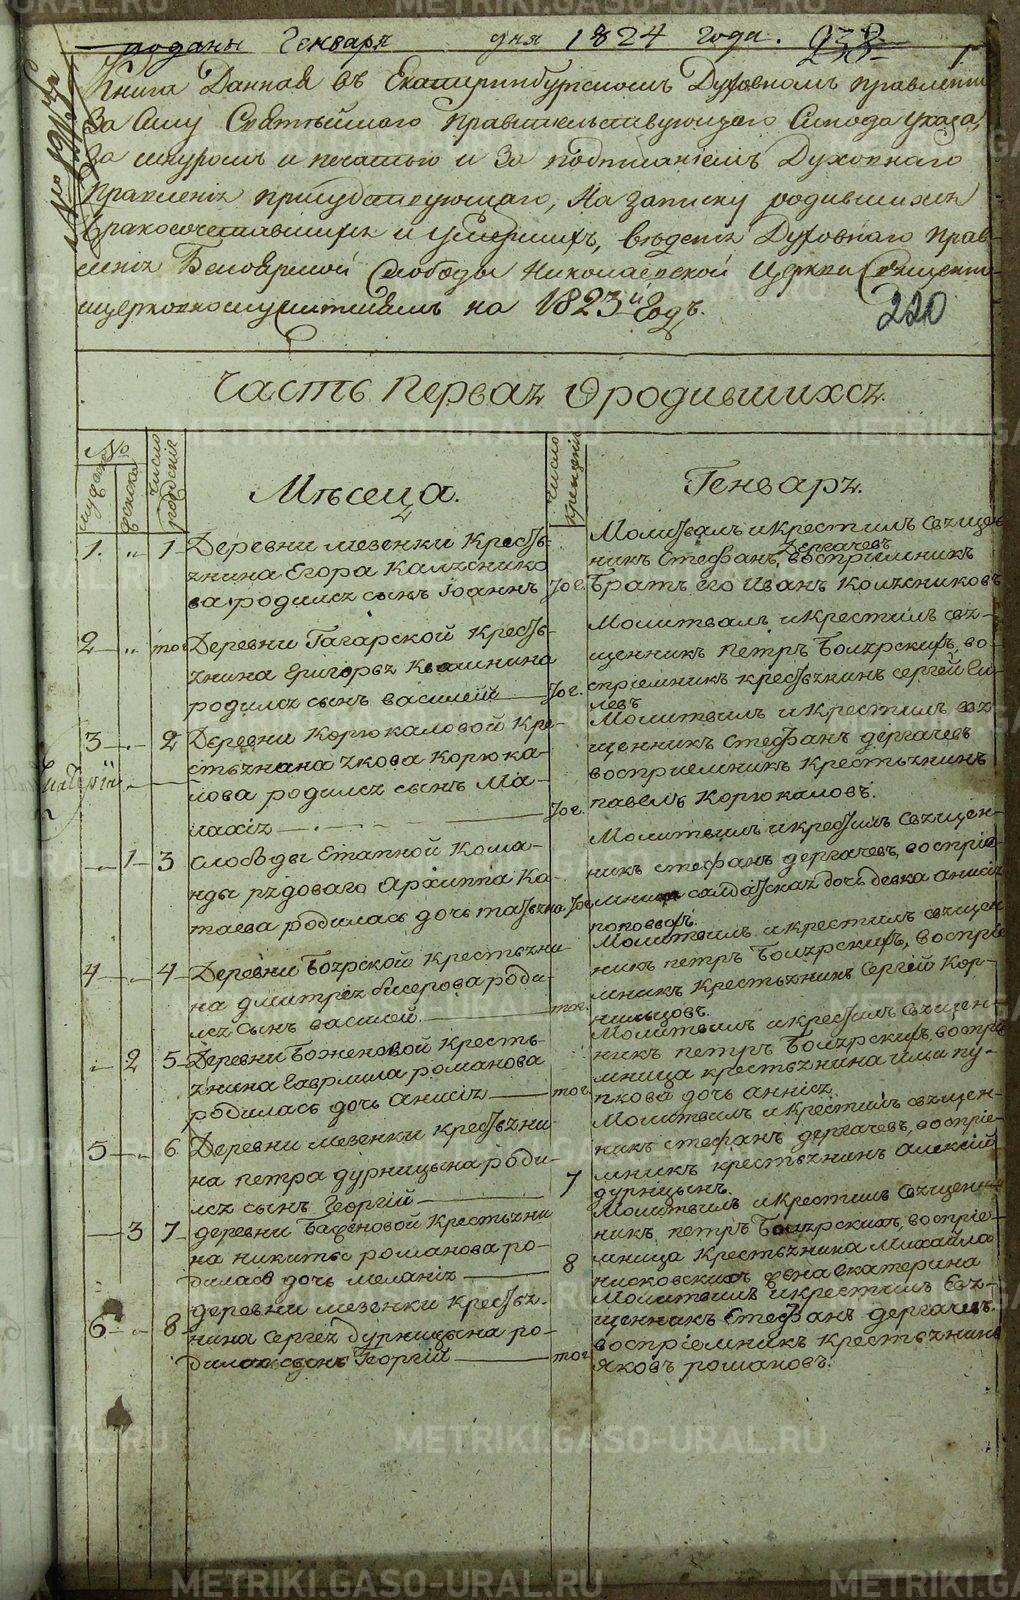 поданы Генваря дня 1824 года. 238
1
Книга Данная въ Екатеринбургскомъ Духовномъ правленіи
За Силу Святѣйшаго Правительствующаго Синода указа,
за шнуромъ и печатью и За подписаніемъ Духовнаго
Правленія присудствующаго, На записку родившихся
бракосочетавшихся и умершихъ, вѣденія Духовнаго Прав-
ленія Белоярской Слободы Николаевской Церкви Священно
ицерковнослужителямъ на 1823й Годъ.
220
Часть Первая О родившихся.
№
мужска
женска
число рождения
Мѣсеца.
число крещения
Генваря.
1. „ 1 Деревни мезенки Кресть-
янина Егора Калѣснико
ва родился сынъ Іоаннъ
Молитвалъ и Крестилъ Священ
никъ Стефанъ Дергачевъ, восприемникъ
братъ его Иванъ Колѣсниковъ
2 „ тог Деревни Гагарской Кресть-
янина Григорья Квашнина
родился сынъ василей тог.
Молитвалъ и Крестилъ свя-
щенникъ петръ Боярскихъ, во-
спріемникъ крестьянинъ сергей Си-
левъ
3 „ 2 Деревни Корюкаловой Кре-
стьянина якова Корюка-
лова родился сынъ Ма-
лахія тог.
Молитвилъ и Крестилъ свя
щенникъ Стефанъ дергачевъ
восприемникъ Крестьянинъ
павелъ Корюкаловъ.
„ 1 3 слободы Етапной Кома-
нды рядоваго Архиппа Ка-
таева родилась дочь татьяна тог
Молитвилъ и крестилъ Священ-
никъ стефанъ дергачевъ, воспріе-
мница салдатская дочь девка анисія
поповыхъ.
4 „ 4 Деревни Боярской Крестьяни-
на дмитрея бисерова роди-
лся Сынъ василей. тог.
Молитвилъ и крестилъ священ
никъ петръ Боярскихъ, воспріе
мникъ Крестьянинъ Сергій Кор-
нильцовъ.
„ 2 5 Деревни Боженовой Кресть-
янина Гаврила романова
родилась дочь Анисія тог
Молитвилъ и крестилъ Священ-
никъ петръ Боярскихъ, воспріе
мница крестьянина пу-
пкова дочь аннися.
5 „ 6 Деревни мезенки крестьяни-
на петра дурницына роди-
лся сынъ Георгій 7
Молитвилъ и крестилъ священ-
никъ стефанъ дергачевъ, воспріе-
мникъ крестьянинъ Алексій
дурницынъ.
3 7 деревни Баженовой Крестьяни
на никиты романова ро-
дилась дочь меланія 8
Молитвилъ и Крестилъ Священ-
никъ, петръ Боярскихъ, воспріе-
мница Крестьянина Михайла
чисковскихъ жена екатерина
6 „ 8 деревни мезенки Кресть-
янина Сергея Дурницына ро-
дился сынъ Георгій тог
Молитвилъ и крестилъ Свя-
щенникъ Стефанъ дергачевъ.
воспріемникъ крестьянинъ
яковъ романовъ.